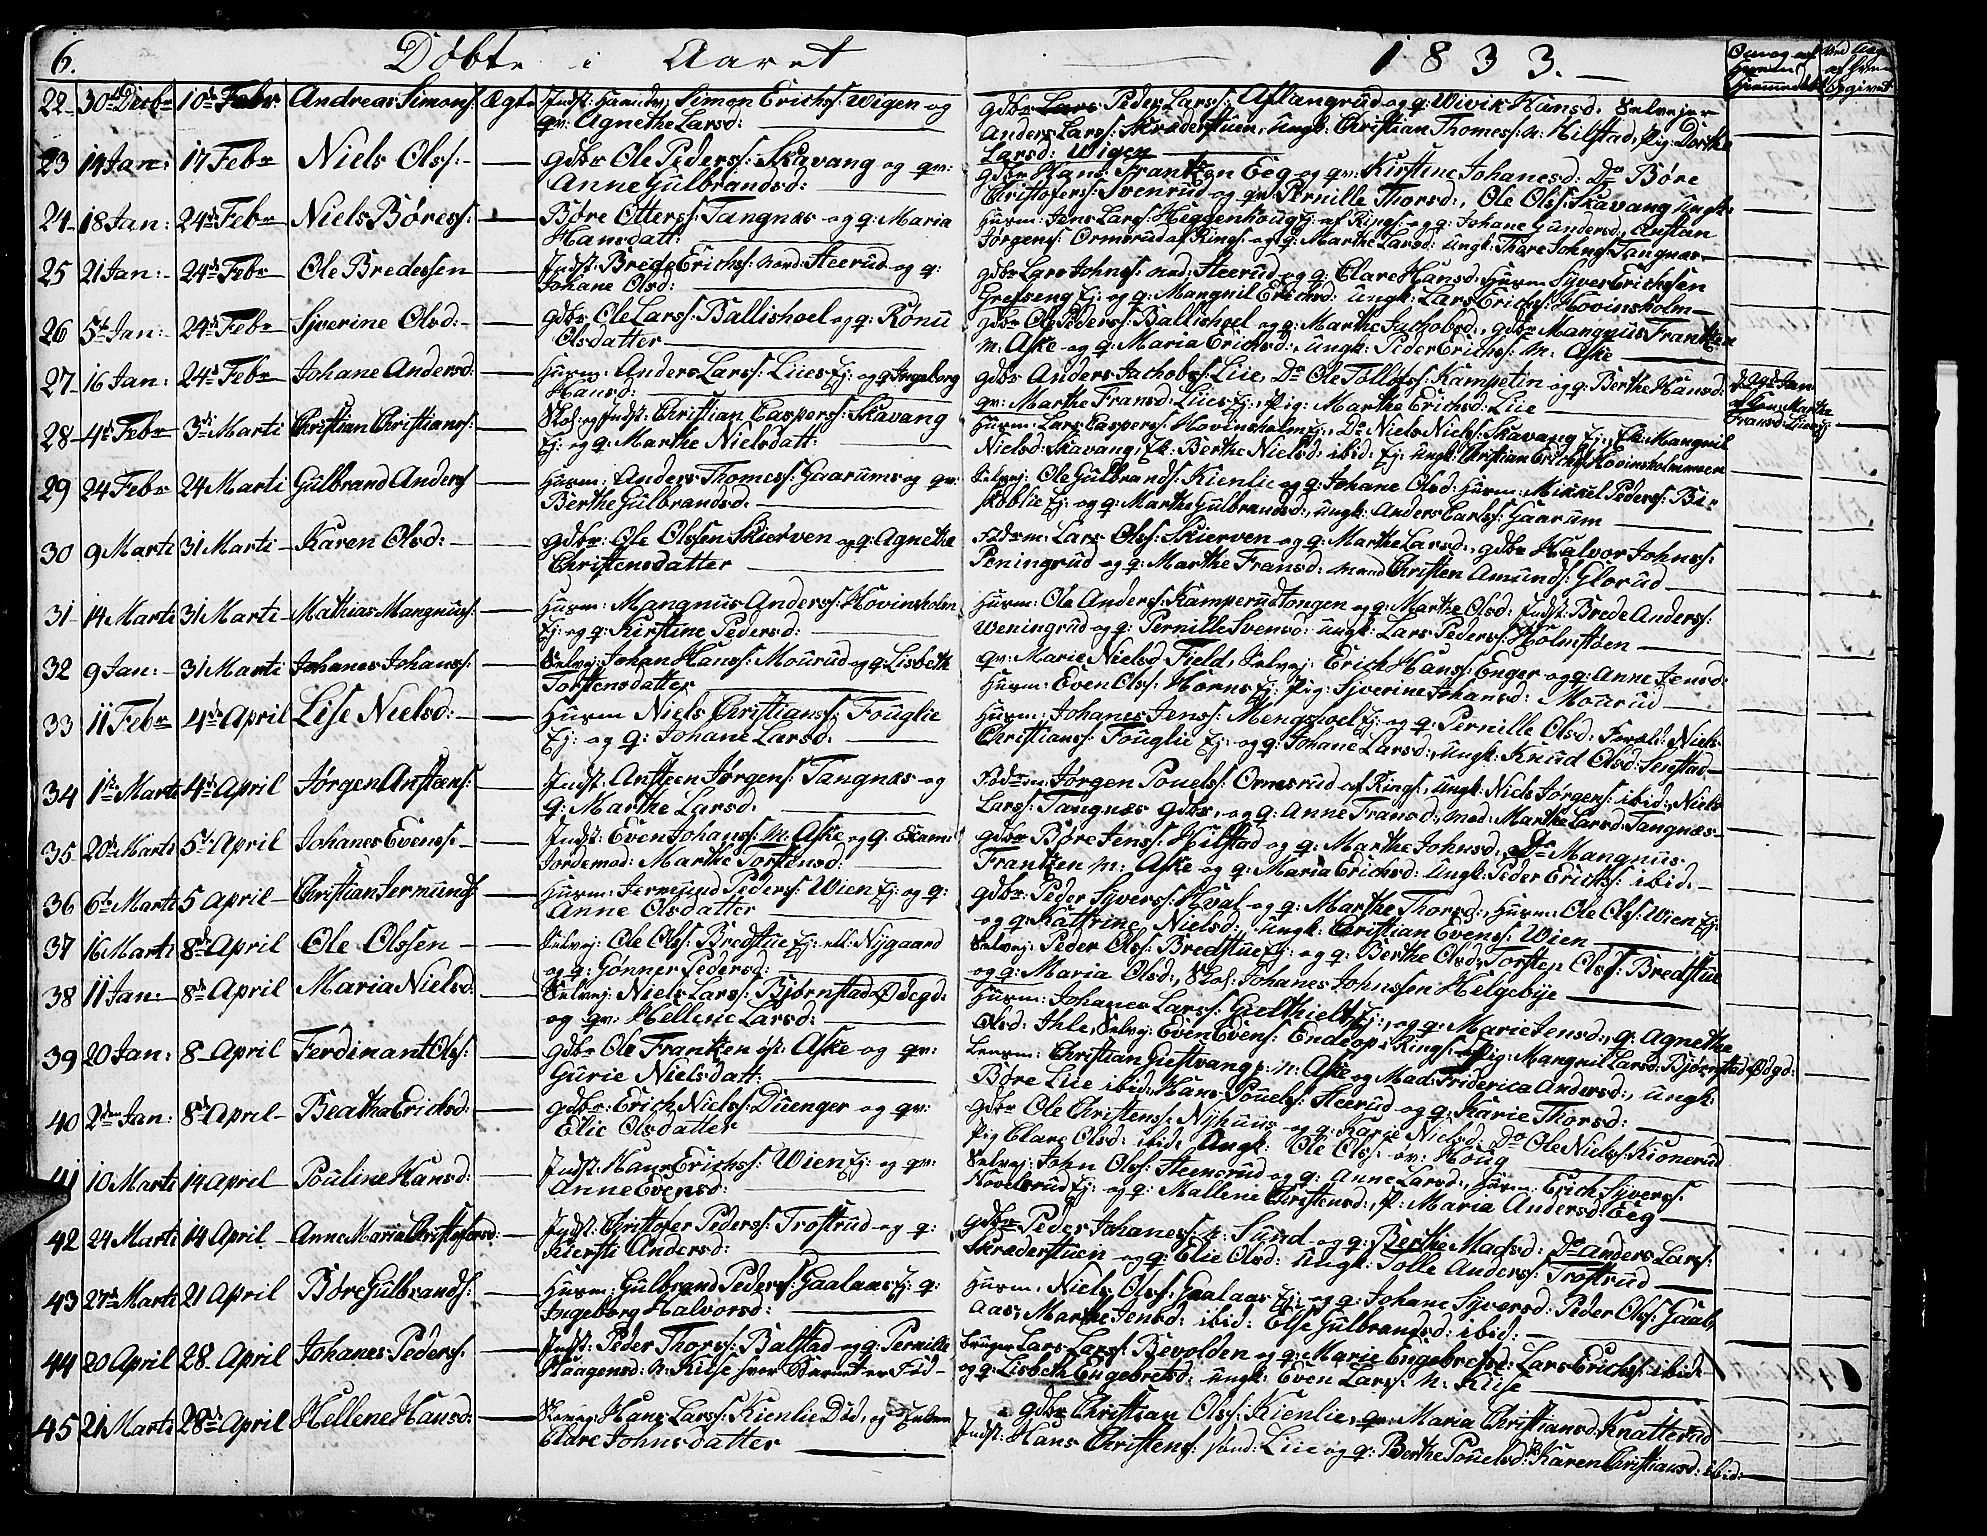 6. Døbte i Aaret 1833.
22 30te Decbr 10de Febr Andreas Simons: Ægte Indst: Simon Erichs: Wigen og
qv: Agnethe Larsd:
gdbr Peder Larss: Aslangrud og q: Wivik Hansd, Selvejer
Anders Larss: Skrædderstuen, ungk: Christian Thomess: n: Hilstad, Pig: Dorthe
Larsd: Wigen
23 14 Jan: 17 Febr Niels Olss:
gdbr Ole Pederss: Skavang og qv:
Anne Gulbrandsd:
gdbr Hans Frantzen Eeg og qv: Kirstine Johanesd: Do Børe
Christofers: Svenrud og qv: Pernille Thorsd:, Ole Olss: Skavang ungk:
24 18 Jan: 24de Febr Niels Børess:
Børe Otterss: Tangnæs og q: Maria
Hansdatt:
Husm: Jens Larss: Heggenhoug Ej: af Rings: og q: Johane Gundersd, Anstian
Jørgens: Ormsrud af Rings: og q: Marthe Larsd: ungk: Thore Johns: Tangnæs
25 21 Jan: 24de Febr Ole Bredessen
Indst: Brede Erichs: nord: Steerud og q:
Johane Olsd:
gdbr Lars Johnss: nord: Steerud og q: Clare Hansd: Husm Syver Erichsen
Grefseng Ej: og q: Mangnil Erichsd: ungk: Lars Erichs: Hovinsholm
26 5te Jan: 24de Febr Syverine Olsd:
gdbr Ole Larss: Ballishoel og q: Rønu
Olsdatter
gdbr Ole Pederss: Ballishoel og q: Marthe Jachobsd:, gdbr Mangnus Frantzen
n: Aske og q: Maria Erichsd:, ungk: Peder Erichs: n: Aske
27 16 Jan: 24de Febr Johane Andersd:
Husm: Anders Larss: Lies Ej: og q Ingeborg
Hansd:
gdbr Anders Jachobs: Lie, Do Ole Tollofs: Kampetin og q: Berthe Hansd:
qv: Marthe Fransd: Lies Ej:, Pig: Marthe Erichsd: Lie
28 4de Febr 3de Marti Christian Christians:
Indst: Christian Caspers: Skavang
Ej: og q: Marthe Nielsdatt:
Husm: Lars Caspers: Hovinsholm Ej:, Do Niels Niels: Skavang Ej:, Ek: Mangnil
Nielsd: Skavang, Ek: Berthe Nielsd: ibid: Ej: ungk: Christian Erichs: Hovinsholmmoen
29 24 Febr 24 Marti Gulbrand Anders
Husm: Anders Thomess: Gaarums og qv:
Berthe Gulbrandsd:
Selvej: Ole Gulbrands: Kienlie og q: Johane Olsd: Husm: Mikkel Pederss: Bi-
skoblie Ej: og q: Marthe Gulbrandsd:, ungk: Anders Carlss: Gaarum
30 9 Marti 31 Marti Karen Olsd:
gdbr: Ole Olssen Skierven og q: Agnethe
Christensdatter
Lars Olss: Skierven og q: Marthe Larsd:, gdbr Halvor Johnss:
Peningrud og q: Marthe Fransd: Christen Amunds: Glorud
31 14 Marti 31 Marti Mathias Mangnus:
Husm: Mangnus Anders: Hovinsholm
Ej: og q: Kirstine Pedersd:
Husm: Ole Anders: Kamperudtongen og q: Marthe Olsd: Indst: Brede Anders:
Weningrud og q: Pernille Svensd: ungk: Lars Peders: Holmstøen
32 9 Jan: 31 Marti Johanes Johanss:
Selvej: Johan Hanss: Mourud og q: Lisbeth
Torstensdatter
qv: Marie Nielsd Field, Selvej: Erich Hanss: Enger og q: Anne Jensd:
Husm: Even Olss: Horns Ej: Pig: Syverine Johansd: Mourud
33 11 Febr 4de April Lise Nielsd:
Husm Niels Christians: Fouglie
Ej: og q: Johane Larsd:
Husm: Johanes Jenss: Mengshoel Ej: og q: Pernille Olsd: Foræld: Niels
Christians: Fouglie Ej: og q: Johane Larsd:, ungk: Knud Olsd: Senstad
34 1te Marti 4de April Jørgen Anstens:
Indst: Ansteen Jørgens: Tangnæs og
q: Marthe Larsd:
Jørgen Pouels: Ormsrud af Rings:, ungk: Niels Jørgens: ibid:, Niels
Larss: Tangnæs gdbr, og q: Anne Fransd:, mad: Marthe Larsd: Tangnæs
35 20de Marti 5te April Johanes Evens:
Indst: Even Johans: n: Aske og q: Exami:
Jordemod: Marthe Torstensd:
gdbr Børe Jens: Hilstad og q: Marthe Johnsd:, Do Mangnus
Frantzen n: Aske og q: Maria Erichsd: ungk: Peder Erichs: ibid:
36 6te Marti 5 April Christian Jermunds
Husm: Jermund Peders: Wien Ej: og q:
Anne Olsdatter
gdbr: Peder Syverss: Hval og q: Marthe Thorsd:, Husm: Ole Olss: Wien Ej:
og q: Kathrine Nielsd: ungk: Christian Evens: Wien
37 16 Marti 8de April Ole Olssen
Selvej: Ole Olss: Bredstue Ej: ell: Nygaard
og q: Gønner Pedersd:
Selvej: Peder Olss: Bredstue Ej: og q: Berthe Olsd: Torsten Olss: Bredstue
og q: Maria Olsd:, Johanes Johnssen Helgebye
38 11 Jan: 8de April Maria Nielsd:
Selvej: Niels Larss: Bjørnstad Ødegd:
og qv: Hellene Larsd:
Husm: Johanes Larss: Gielthiels Ej:, og q: Marie Jensd:, q: Agnethe
Olsd: Ihle, Selvej: Even Evens: Endeop i Rings: Pig: Mangnil Larsd: Bjørnstad Ødgd:
39 20 Jan: 8 April Ferdinant Ols:
gdbr Ole Frantzen ø: Aske og qv:
Gurie Nielsdatt:
Lensm: Christian Giestvang p: n: Aske og Mad: Friderica Andersd:, ungk:
Børe Lie ibid:, Hans Pouels: Steerud og q: Karie Thorsd:
40 2den Jan: 8de April Beatha Erichsd:
gdbr: Erich Niels: Duenger og qv:
Elie Olsdatter
gdbr Ole Christens: Nyhuus og q: Karie Nielsd: Do Ole Niels: Kionerud
Pig Clare Olsd: ibid: Ungk: Ole Olss: ov: Houg
41 10 Marti 14 April Pouline Hansd:
Indst: Hans Erichs: Wien Ej: og qv:
Anne Evensd:
Selvej: John Olss: Steensrud og q: Anne Larsd:, Husm: Erich Syverss:
Hovelsrud Ej: og q: Mallene Christensd:, P: Maria Andersd: Eeg
42 24 Marti 14 April Anne Maria Christofersd:
Indst: Christofer Peders: Trostrud og q:
Kiersti Andersd:
gdbr Peder Johaness: n: Sund og q: Berthe Madsd: Do Anders Larss:
Skrederstuen og q: Elie Olsd: Ungk: Tolle Anders: Trostrud
43 27de Marti 21 April Børe Gulbrands:
Husm: Gulbrand Peders: Gaalaas Ej: q:
Ingeborg Halvorsd:
Husm: Niels Olss: Gaalaas Ej: og q: Johane Syversd: Peder Olss: Gaal-
aas, Marthe Jensd: ibid: Else Gulbrandsd: ibid:
44 20 April 28. April Johanes Peders:
Indst: Peder Thorss: Balstad og q: Pernille
Haagensd: n: Kiise hvor Barnet er Fød
bruger Lars Larss: Bevolden og q: Marie Engebretsd: Lars Erichs: ibid:
og q: Lisbeth Engebretsd: ungk: Even Larss: n: Kiise
45 21 Marti 28de April Hellene Hansd:
Hans Larss: Kienlie Død, og
Clare Johnsdatter
gdbr Christian Olss: Kienlie, qv: Maria Christiansd: Knatterud
Indst: Hans Christens: sønd: Lie og q: Berthe Pouelsd: Karen Christiansd: ibid: